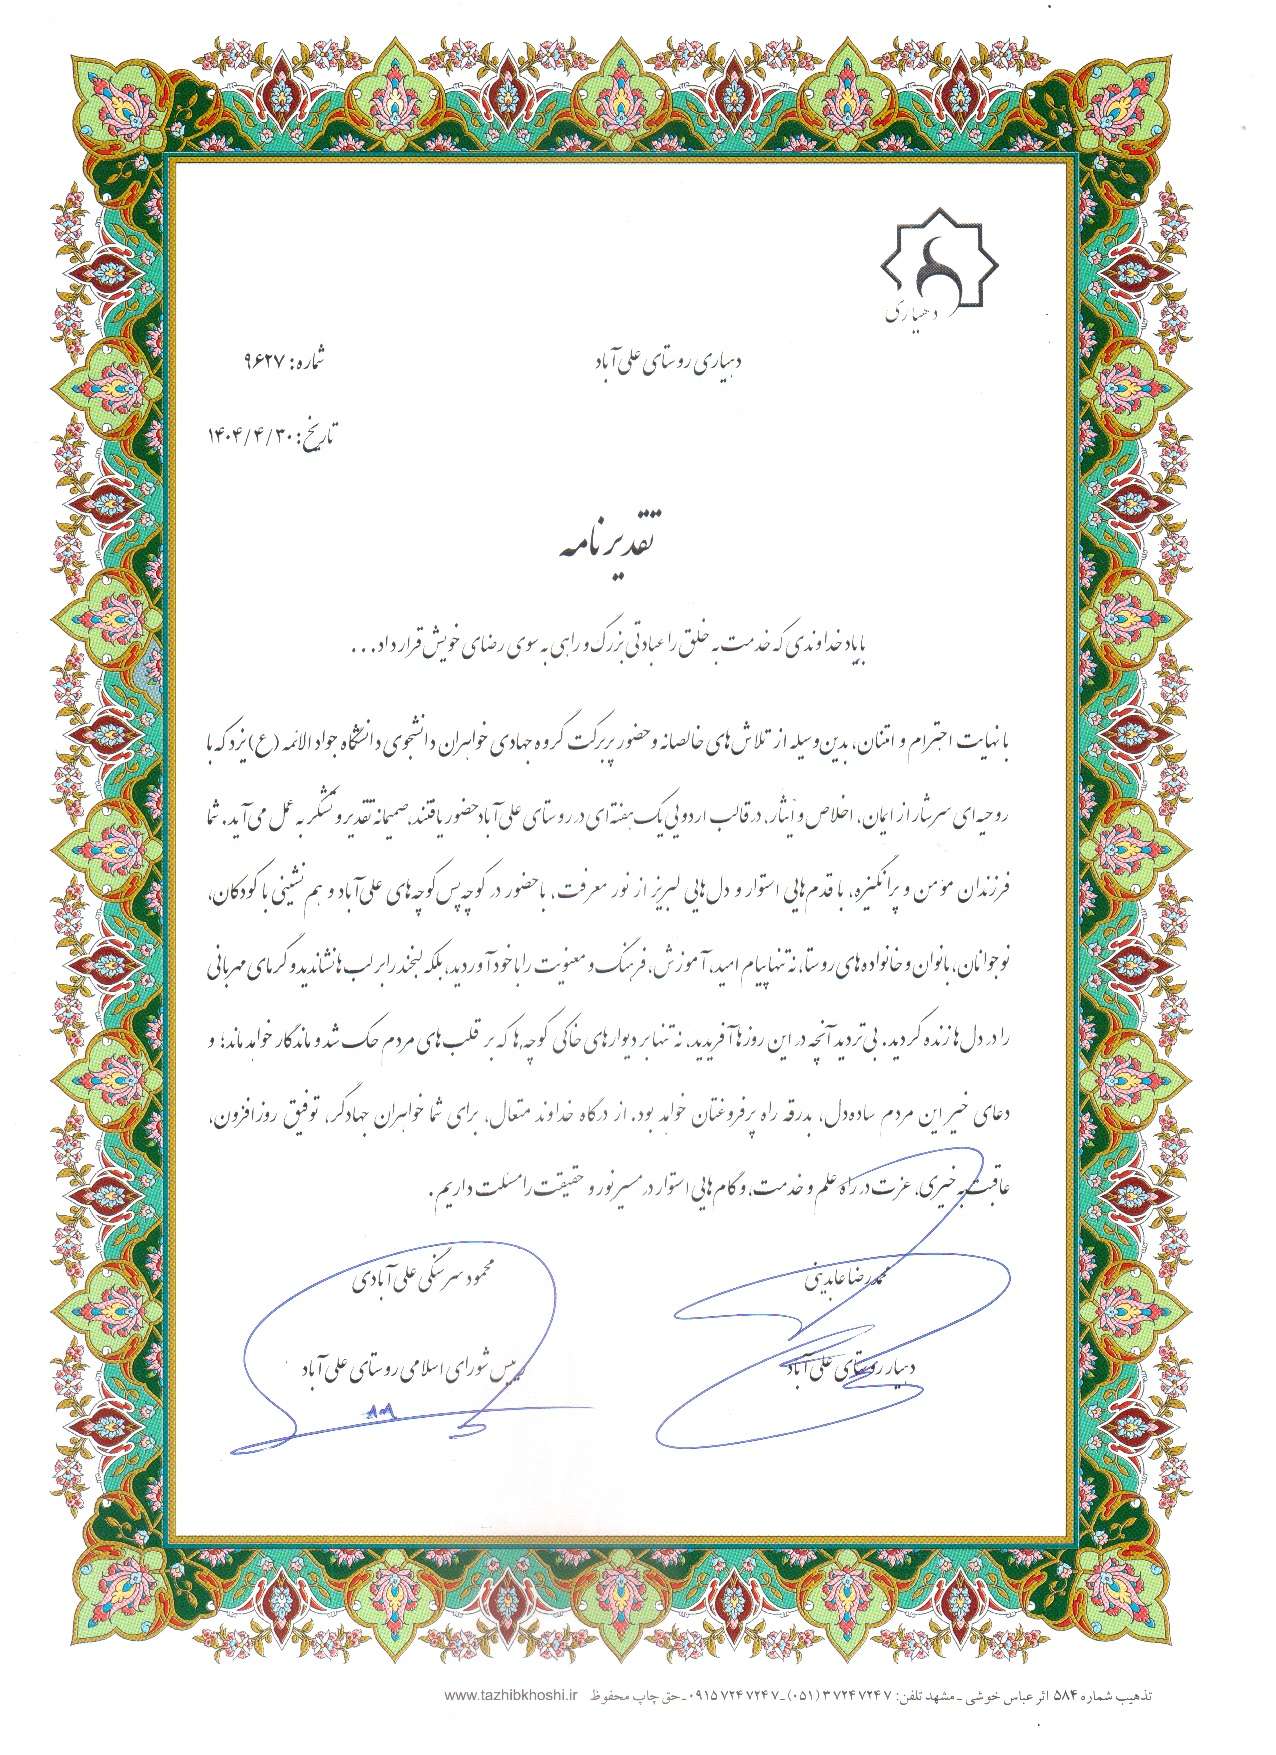 دهیاری
دهیاری روستای علی‌آباد
شماره: ۹۶۲۷
تاریخ: ۱۴۰۴/۴/۳۰
تقدیرنامه
با یاد خداوندی که خدمت به خلق را عبادتی بزرگ و راهی به سوی رضای خویش قرار داد...
با نهایت احترام و امتنان، بدین‌وسیله از تلاش‌های خالصانه و حضور پربرکت گروه جهادی خواهران دانشجوی دانشگاه جواد الائمه (ع) یزد که با
روحیه‌ای سرشار از ایمان، اخلاص و ایثار، در قالب اردویی یک هفته‌ای در روستای علی‌آباد حضور یافتند، صمیمانه تقدیر و تشکر به عمل می‌آید. شما
فرزندان مؤمن و پرانگیزه، با قدم‌هایی استوار و دل‌هایی لبریز از نور معرفت، با حضور در کوچه پس کوچه‌های علی‌آباد و هم‌نشینی با کودکان،
نوجوانان، بانوان و خانواده‌های روستا، نه تنها پیام امید، آموزش، فرهنگ و معنویت را با خود آوردید، بلکه لبخند را بر لب‌ها نشاندید و گرمای مهربانی
را در دل‌ها زنده کردید. بی‌تردید آنچه در این روزها آفریدید، نه تنها بر دیوارهای خاکی کوچه‌ها که بر قلب‌های مردم حک شد و ماندگار خواهد ماند؛ و
دعای خیر این مردم ساده‌دل، بدرقه راه پرفروغتان خواهد بود. از درگاه خداوند متعال، برای شما خواهران جهادگر، توفیق روزافزون،
عاقبت به خیری، عزت در راه علم و خدمت، و گام‌هایی استوار در مسیر نور و حقیقت را مسئلت داریم.
محمدرضا عابدینی
محمود سرسنگی علی‌آبادی
دهیار روستای علی‌آباد
رییس شورای اسلامی روستای علی‌آباد
تذهیب شماره ۵۸۴ اثر عباس خوشی ـ مشهد تلفن: ۳۷۲۴۷۲۴۷ (۰۵۱) ـ ۰۹۱۵۷۲۴۷۲۴۷ ـ حق چاپ محفوظ www.tazhibkhoshi.ir